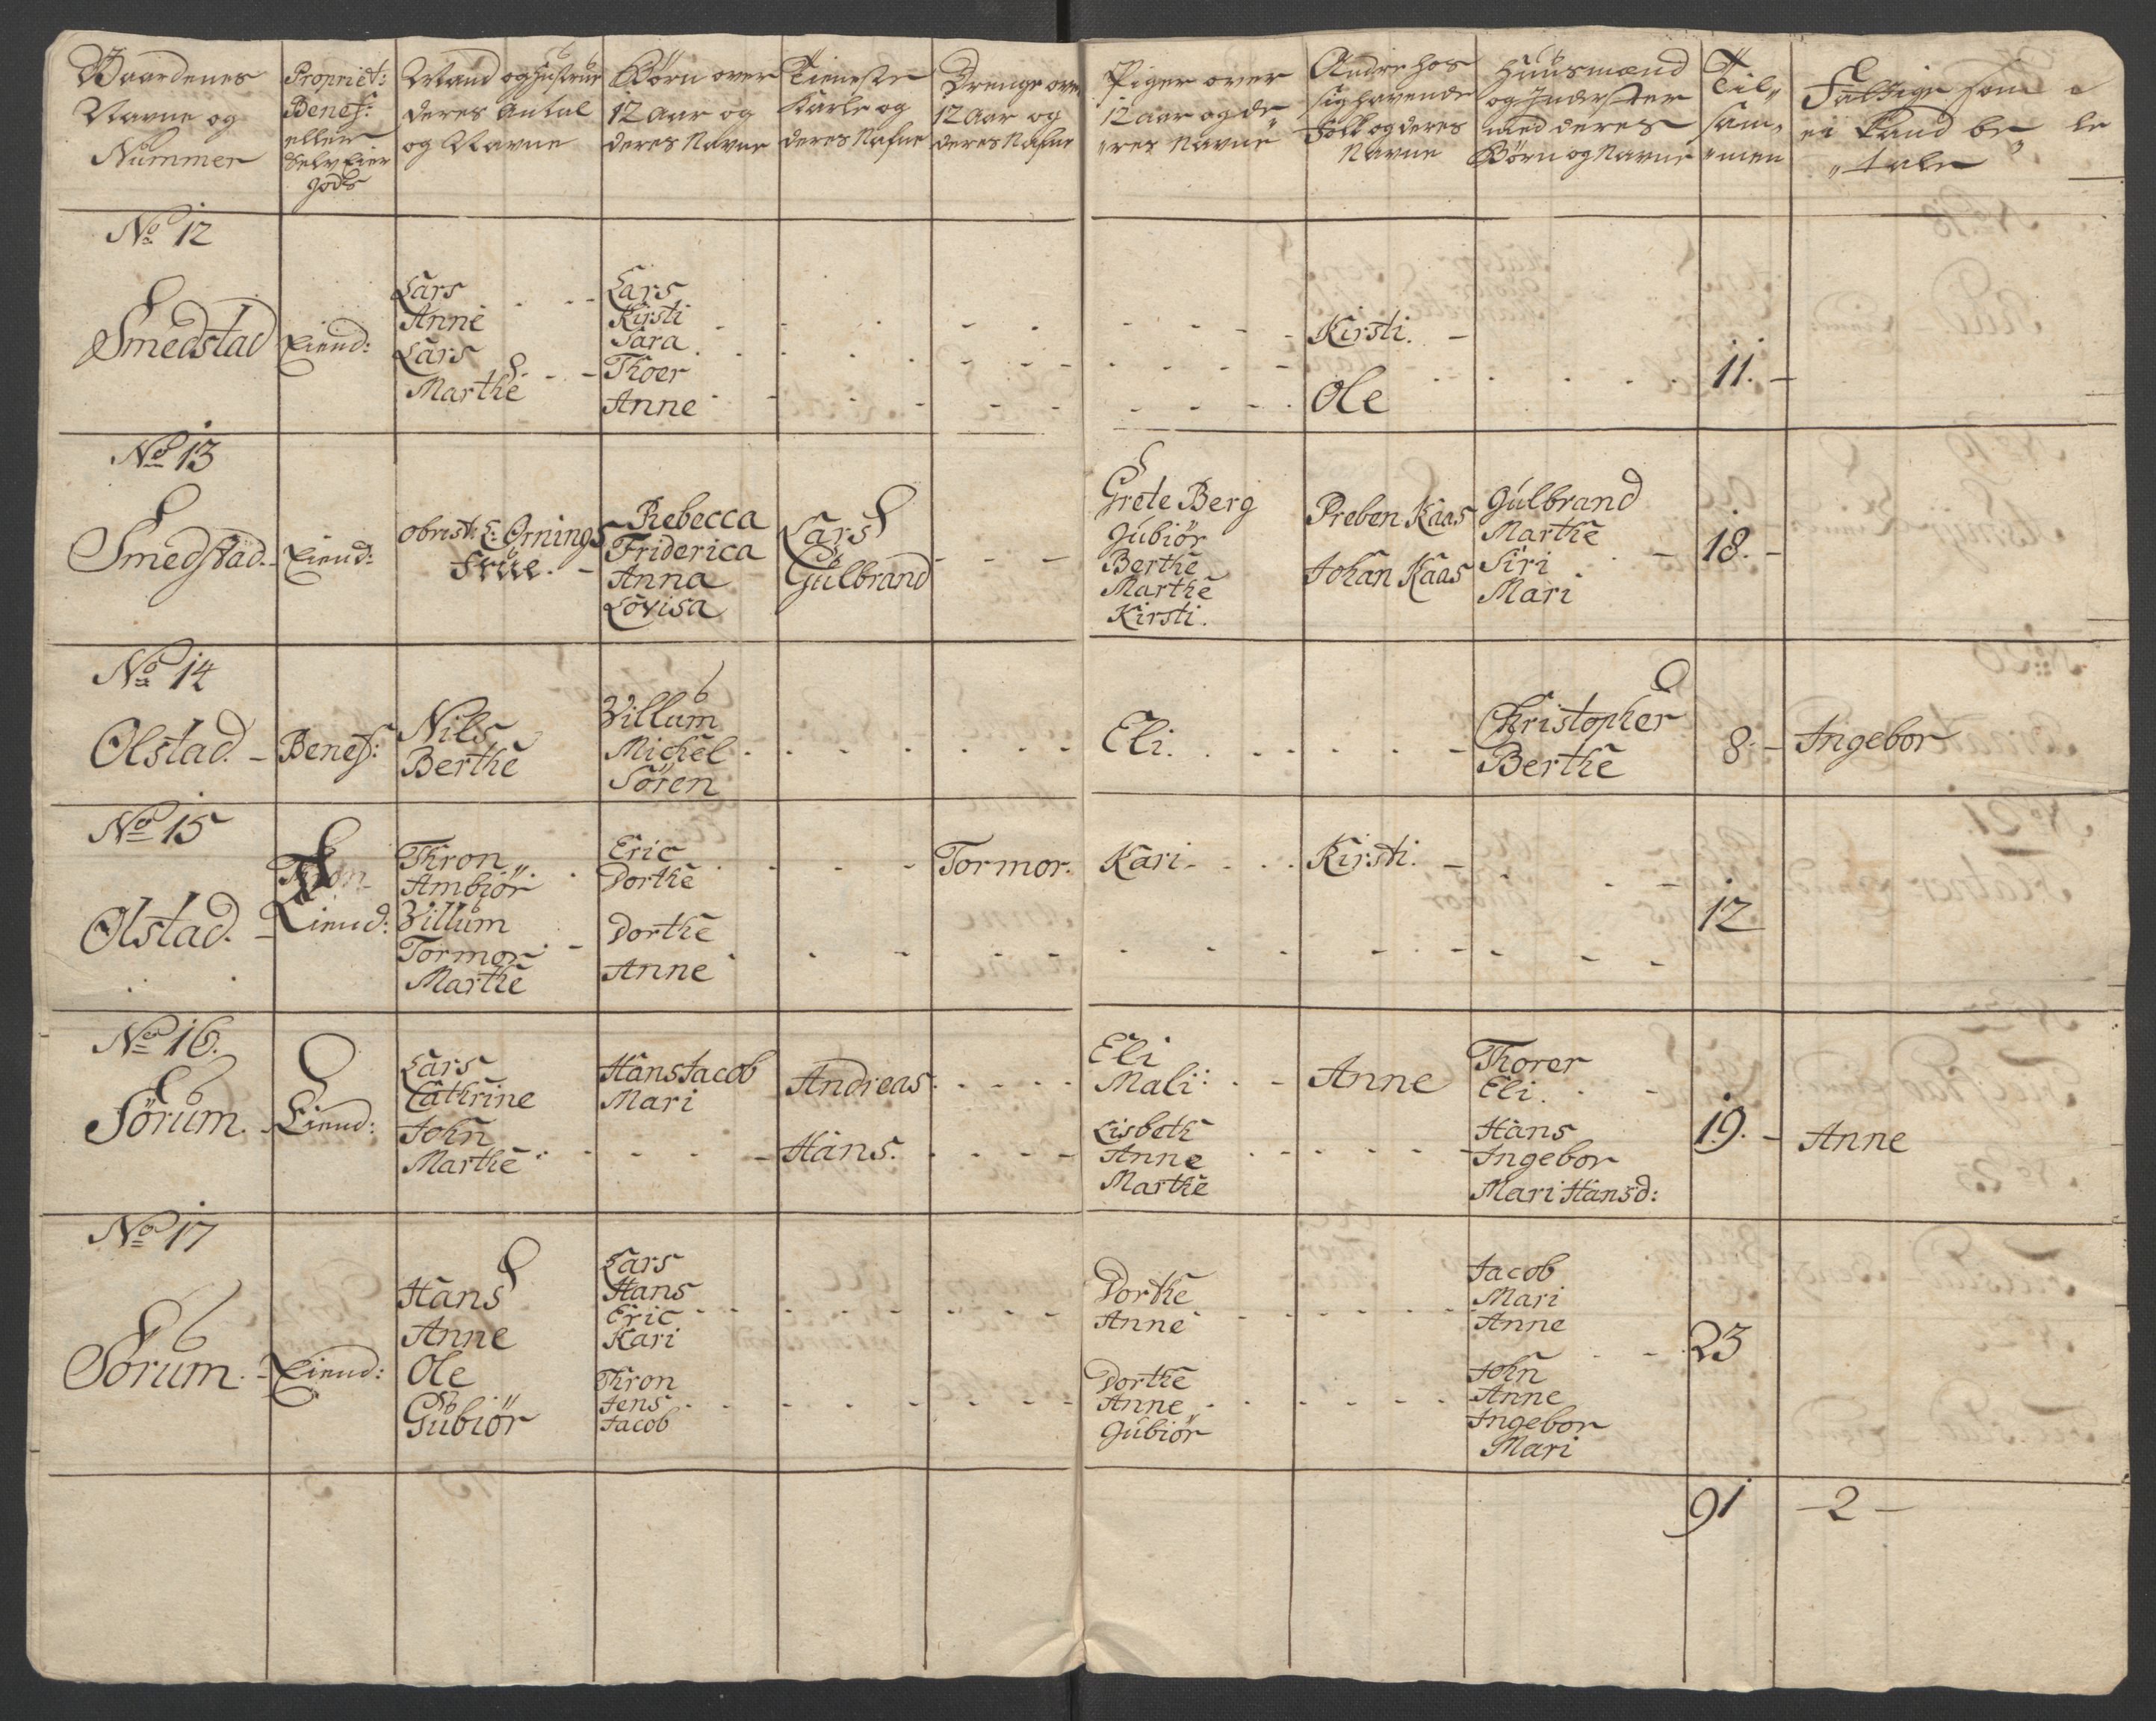 Gaardenes
Navne og
Nummer
Propriet:
Benef:
eller
Selv Eier
gods
Mand og Hustrue
deres Antal
og Navne
Börn over
12 Aar og
deres Navne
Tieneste
Karle og
deres Nafne
Drenge over
12 Aar og
deres Nafne
Piger over
12 aar og de„
„res Navne
Andre hos
sig havende
Folk og deres
Navne
Huusmænd
og Inderster
med deres
Börn og Navne
Til„
sam„
„men
Fattige som
ei kand be„
„tale
No 12
Smedstad
Eiend:
Lars
Anne
Lars
Marthe
Lars
Kirsti
Sara
Thoer
Anne
Kirsti.
Ole
11.
No 13
Smedstad.
Eiend:
obrist: L: Ornings
Frue.
Rebecca
Friderica
Anna
Lovisa
Lars
Gulbrand
Grete Berg
Gubiör
Berthe
Marthe
Kirsti.
Preben Kaas
Johan Kaas
Gulbrand
Marthe
Siri
Mari
18.
No 14
Olstad.
Benef:
Nils
Berthe
Villum
Michel
Sören
Eli.
Christopher
Berthe
8.
Ingebor
No 15
Olstad.
Eiend:
Thron
Ambiör
Villum
Tormor
Marthe
Eric
Dorthe
Dorthe
Anne
Tormor.
Kari
Kirsti.
12
No 16.
Sörum.
Eiend:
Lars
Cathrine
John
Marthe
Hans Jacob
Mari
Andreas.
Hans.
Eli
Mali
Lisbeth
Anne
Marthe
Anne
Thorer
Eli.
Hans
Ingebor
Mari Hansd:
19.
Anne
No 17
Sorum.
Eiend:
Hans
Anne
Ole
Gubiör
Lars
Hans
Eric
Kari
Thron
Jens
Jacob
Dorthe
Anne
Dorthe
Anne
Gubiör
Jacob
Mari
Anne
John
Anne
Ingebor
Mari
23
91
-2-